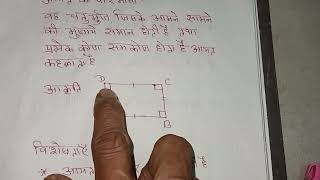 वह चतुर्भुज जिसके आमने सामने
की भुजाये समान होती है तथा
प्रत्येक कोण समकोण होता है आयत
कहलाता है
D C
आकृति
B
विशेषताएँ
* आयत है